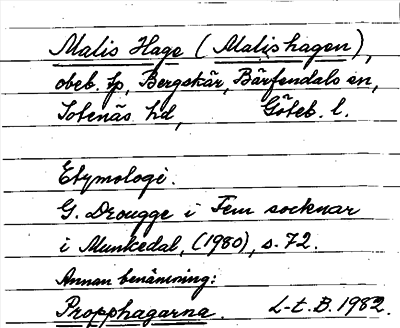 Malis Hage (Malishagen),
obeb. sp, Bergskär, Bärfendals sn,
Sotenäs hd, Göteb. l.
Etymologi.
G. Drougge i Fem socknar
i Munkedal, (1980), s. 72.
Annan benämning:
Propphagarna. L-t. B. 1982.